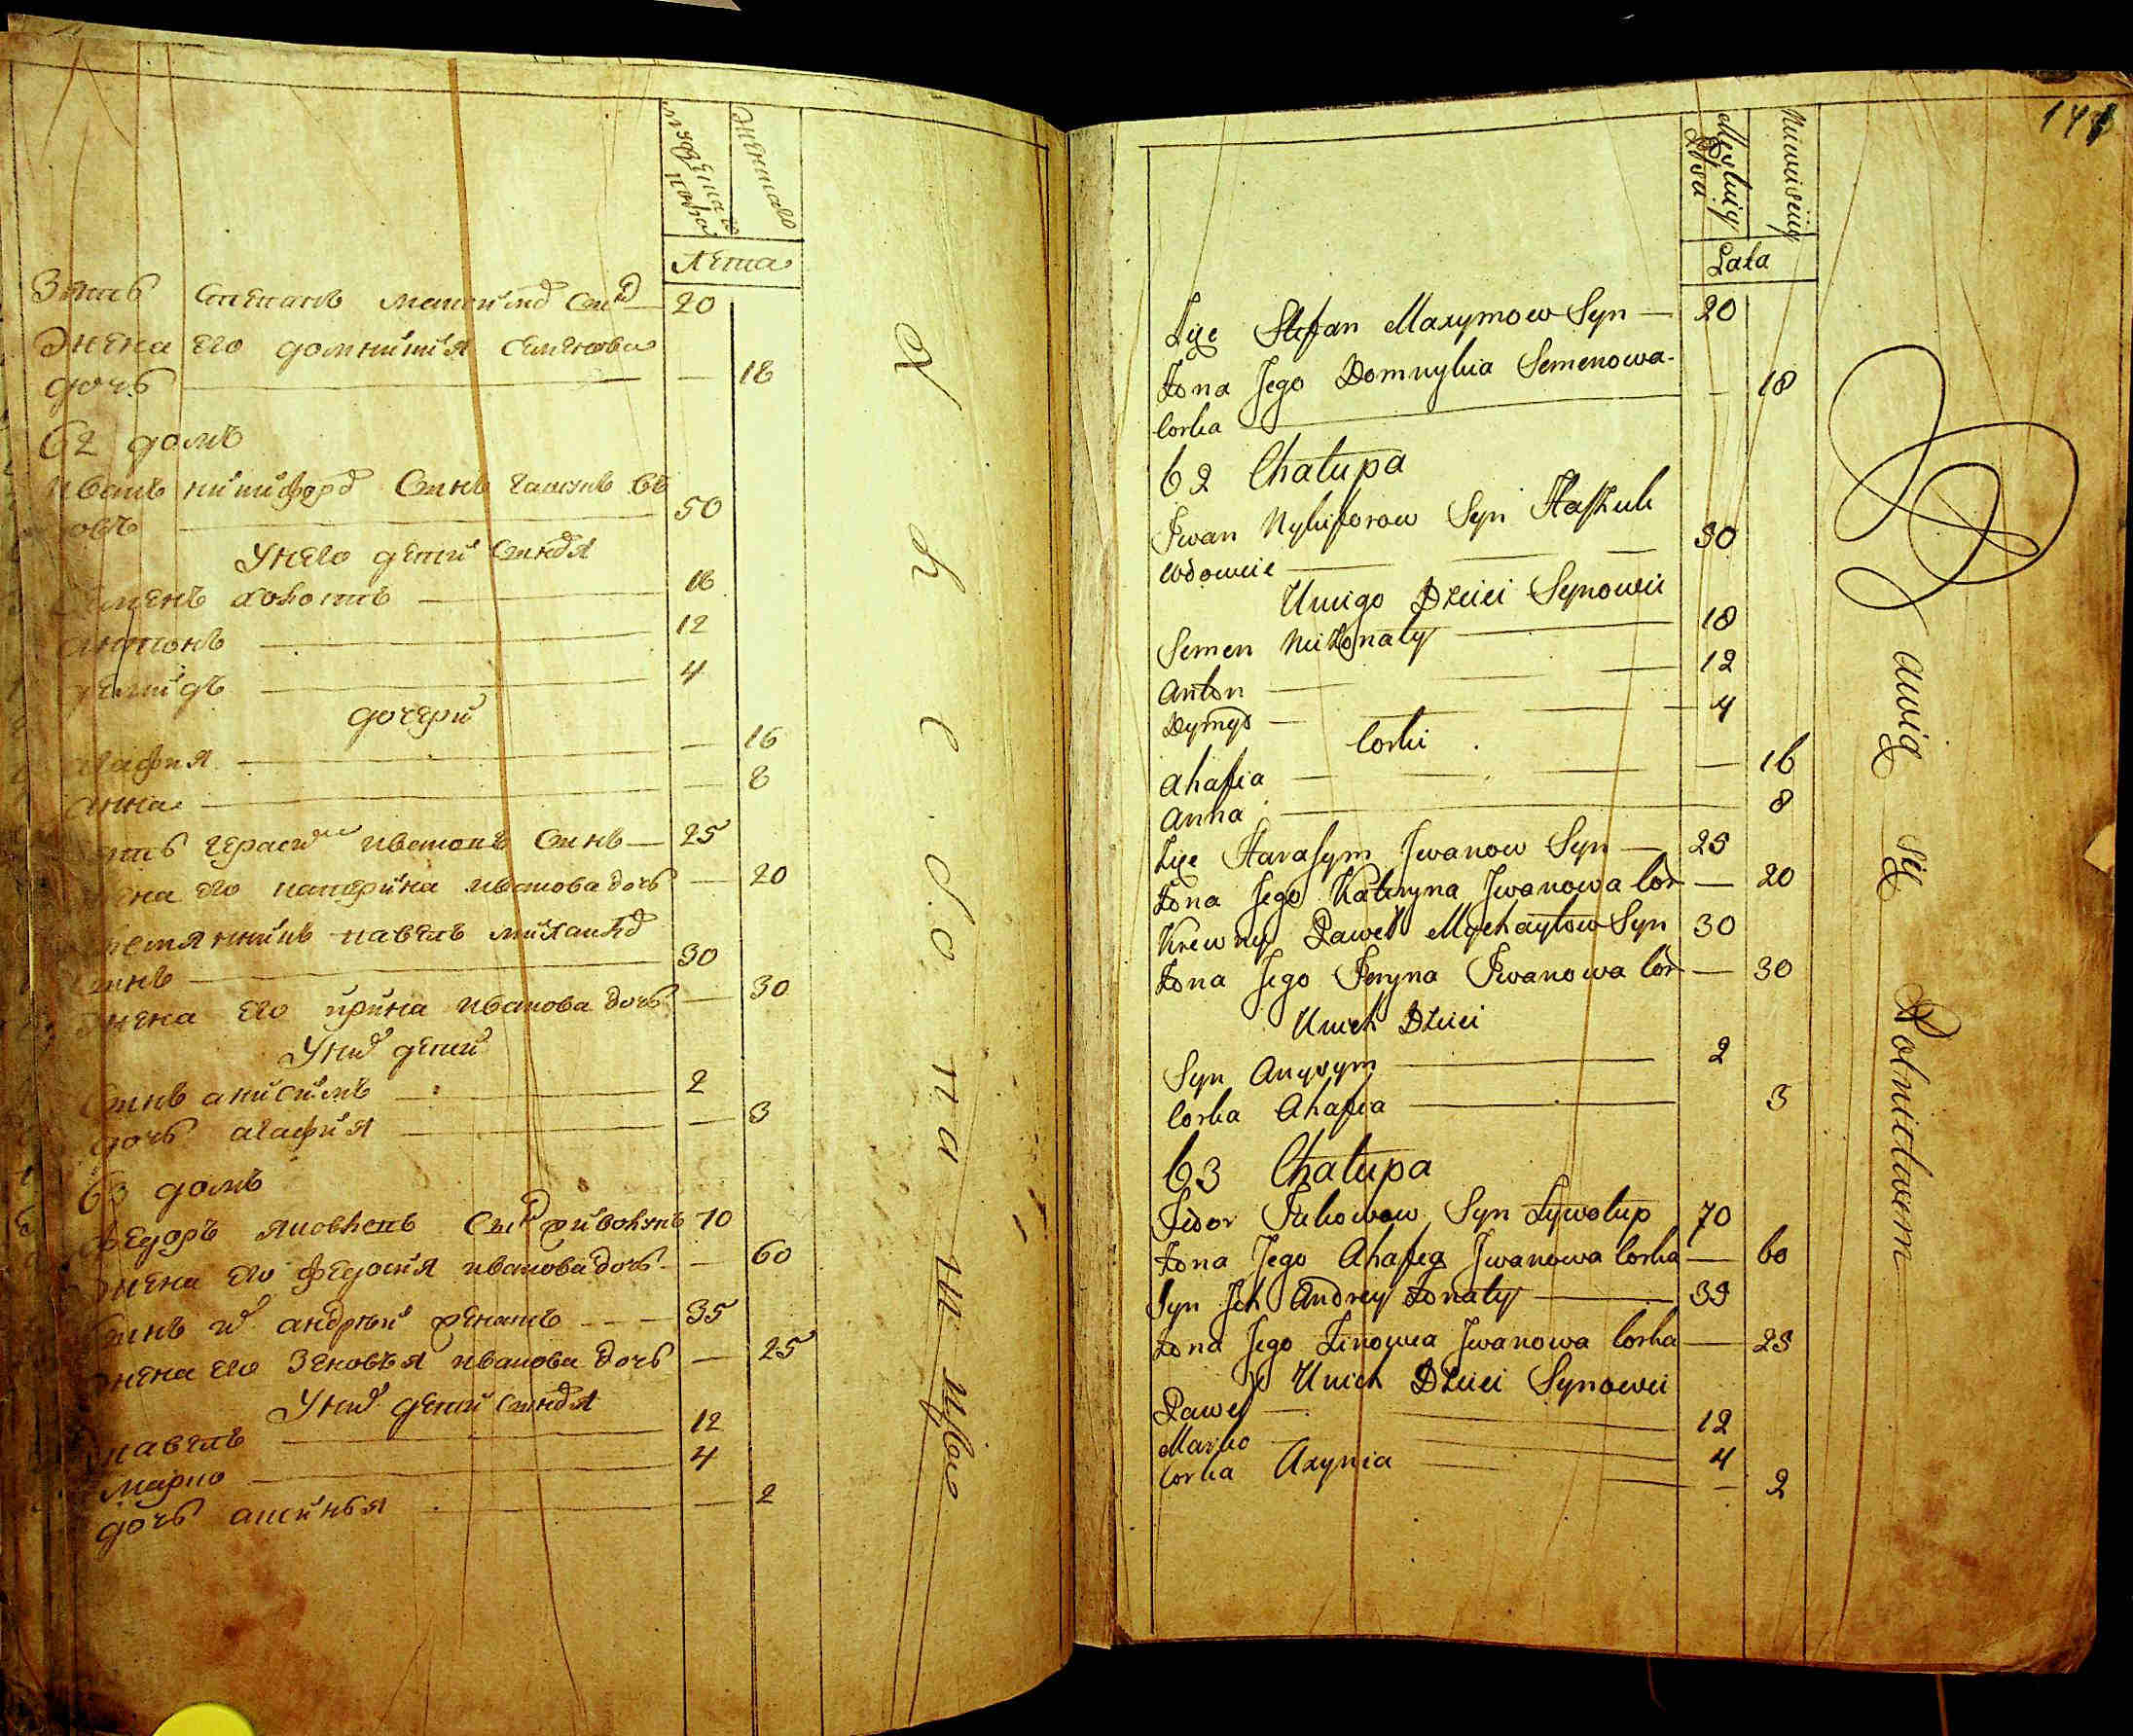 Лета
Зять Степанъ Максимо Сы 20
Жена его домникия семенова
дочь 18
62 домъ
иванъ никифоро Сынъ
овъ 50
У него дети Синовя
Семенъ холостъ 18
антонъ 12
демидъ 4
дочери
агафия 16
анна 8
зять герасим ивановъ Синъ 25
жена его катерина иванова дочь 20
павелъ михаило
Синъ 30
жена его ирина иванова дочь 30
У них дети
Синъ анисимъ 2
дочь агафия 3
63 домъ
Федоръ яковлевъ Сы 70
жена его федосия иванова дочь 60
Синъ их андрей женатъ 35
жена его Зеновья иванова дочь 25
У них дети синовя
павелъ 12
марко 4
дочь аксинья 2
141
Męskiey
Płca
Niewieściey
Lata
Zięć Stefan Maxymow Syn 20
Żona Jego Domnykia Semenowa
Corka 18
62 Chałupa
Jwan Nykiforow Syn
Wdowiec 50
U niego Dzieci Synowie
Semen Nieżonaty 18
Anton 12
Dymyd 4
Corki
Ahafia 16
Anna 8
Zięć Harasym Jwanow Syn 25
Żona Jego Kateryna Jwanowa Cor 20
Krewny Paweł Mychayłow Syn 30
Żona Jego Jeryna Jwanowa Cor 30
U nich Dzieci
Syn Anysym 2
Corka Ahafia 3
63 Chałupa
Fedor Jakowow Syn Żywołup 70
Żona Jego Ahafia Jwanowa Corka 60
Syn Jch Andrey Żonaty 35
Żona Jego Zinowia Jwanowa Corka 25
U nich Dzieci Synowie
Paweł 12
Marko 4
Corka Axynia 2
Bawią się Rolnictwem